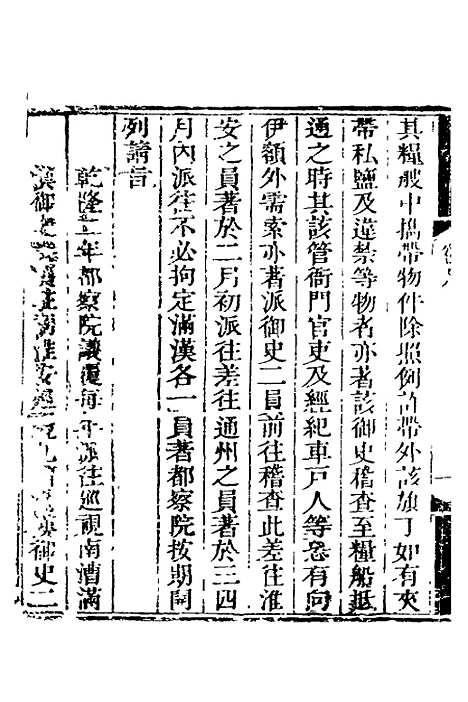 其糧艘中攜帶物件除照例許帶外該旗丁如有夾
帶私鹽及違禁等物者亦著該御史稽查至糧船抵
通之時其該管衙門官吏及經紀車戸人等恐有向
伊額外需索亦著派御史二員前往稽查此差往淮
安之員著於二月初派往差往通州之員著於三四
月內派往不必拘定滿漢各一員著都察院按期開
列請旨
乾隆二年都察院議覆每年派往巡視南漕滿
漢御史 淮安 漢御史二